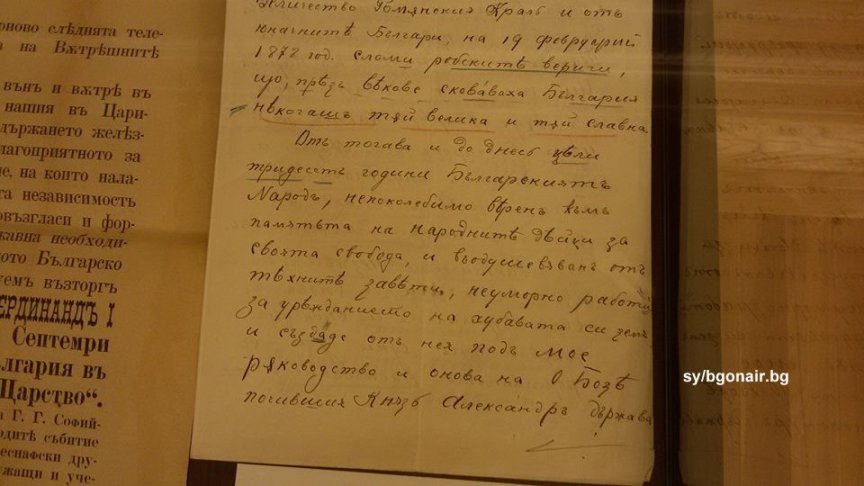 оново слѣдната теле-
а на Вѫтрѣшнитѣ
вънъ и вѫтрѣ въ
нашия въ Цари-
държането желѣз-
лагоприятното за
е, на които нала-
та независимость
овъзгласи и фор-
жавна необходи-
ното Българско
уемъ възторгъ
ЕРДИНАНДЪ I
Септемри
лгария въ
Царство“.
а Г. Г. Софий-
одитѣ събитие
еснафски дру-
жащи и уче-
Величество Ромънския Краль и отъ
юначнитѣ Българи, на 19 февруарий
1878 год. сломи робскитѣ вериги,
що, прѣзъ вѣкове сковаваха България
нѣкогашъ тъй велика и тъй славна.
Отъ тогава и до днесь цѣли
тридесеть години Българскиятъ
Народъ, непоколебимо вѣренъ къмъ
паметьта на народнитѣ дѣйци за
своята свобода, и въодушевяванъ отъ
тѣхнитѣ завѣти, неуморно работи
за урѣжданието на хубавата си земя
и създаде отъ нея подъ Мое
рѫководство и онова на о Бозѣ
почившия Князъ Александръ държава
sy/bgonair.bg